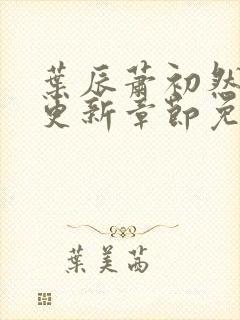 葉辰蕭初然
更新章節免
葉美茜